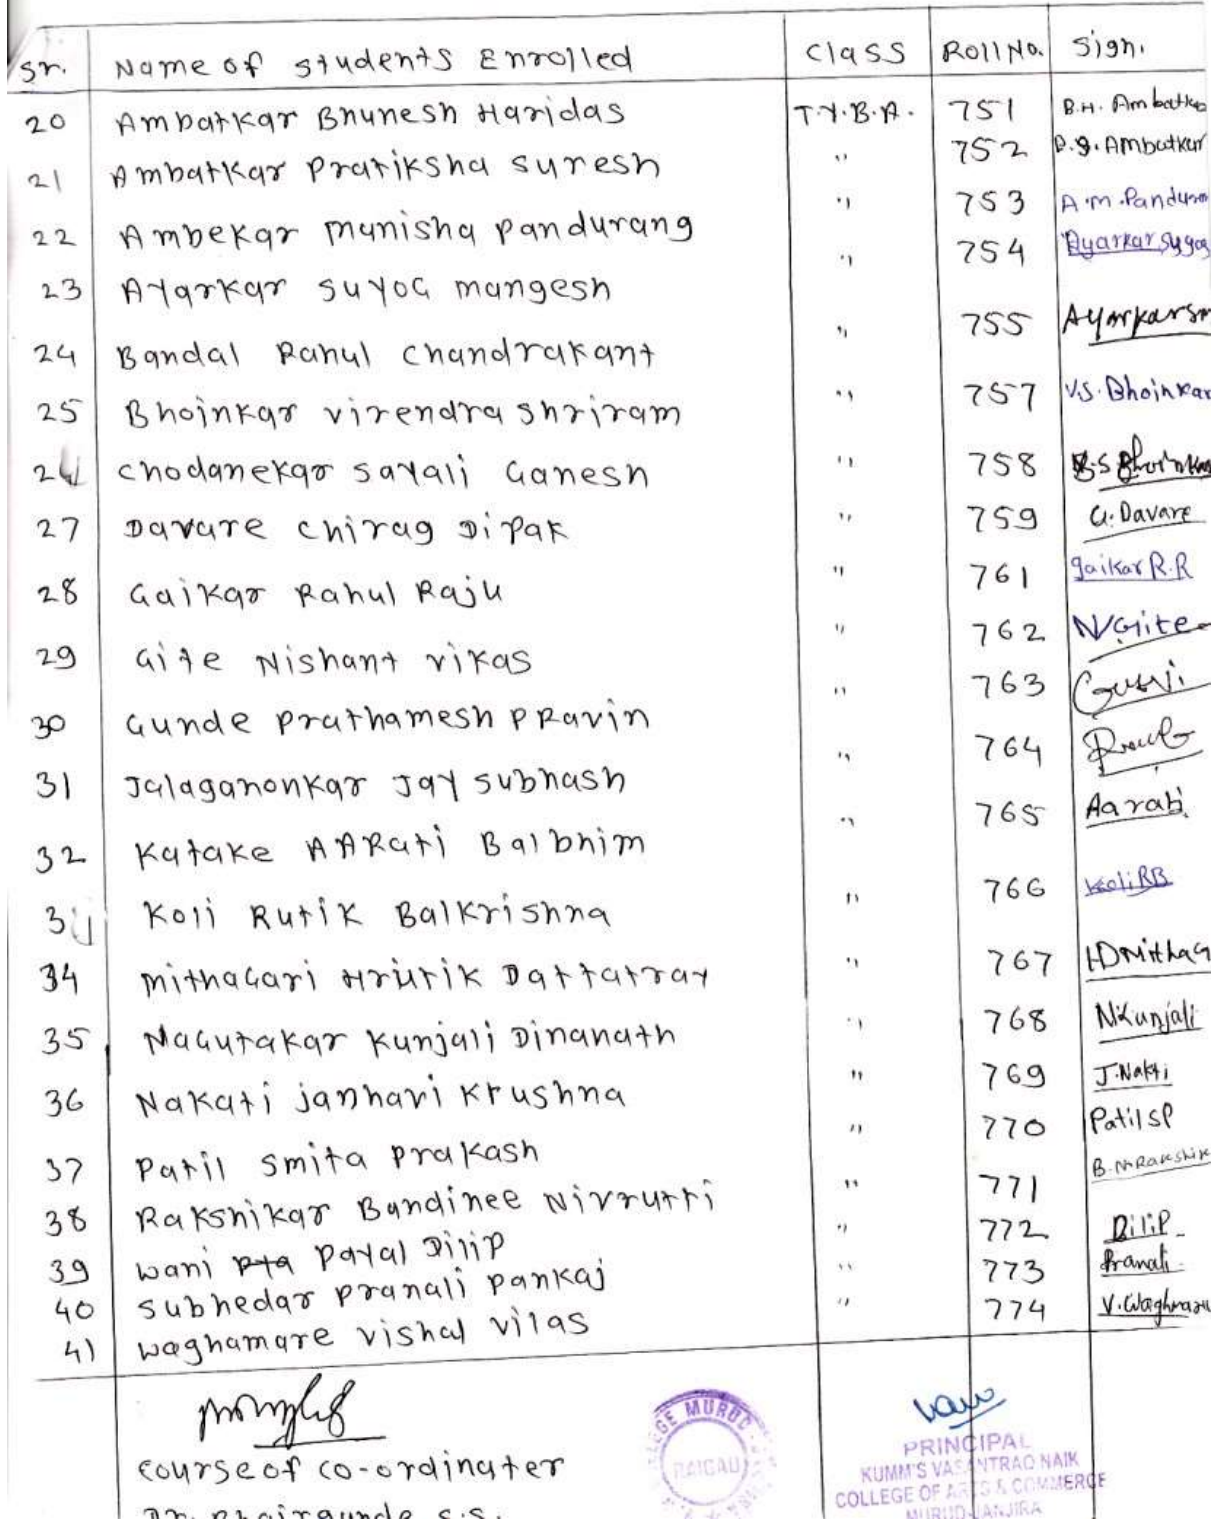 Sr. Name of students Enrolled Class Roll No. Sign.
20 Ambatkar Bhunesh Haridas T.Y.B.A. 751 B.H. Ambatka
21 Ambatkar Pratiksha suresh " 752 P.S. Ambatkar
22 Ambekar manisha pandurang " 753 A.m.Pandura
23 Ayarkar suyoG mangesh " 754 Ayarkar Suyog
24 Bandal Rahul Chandrakant " 755
25 Bhoinkar virendra shriram " 757 V.S. Bhoinkar
26 chodanekar sayali Ganesh " 758
27 Davare chirag Dipak " 759 C. Davare
28 Gaikar Rahul Raju " 761 gaikar R.R
29 Gite Nishant vikas " 762 N Gite
30 Gunde prathamesh PRavin " 763
31 Jalaganonkar Jay subhash " 764
32 Katake AARati Balbhim " 765 Aarati
33 Koli Rutik Balkrishna " 766 Koli RB
34 mithaGari Hrutik Dattatray " 767 HDMithaG
35 NaGutakar kunjali Dinanath " 768 N Kunjali
36 Nakati janhavi krushna " 769 J.Nakti
37 Patil smita prakash " 770 Patil SP
38 Rakshikar Bandinee Nivrutti " 771 B. N. Rakshik
39 wani Payal Dilip " 772 Dilip
40 subhedar pranali pankaj " 773 Pranali
41 waghamare vishal vilas " 774 V. Waghmare
course of co-ordinater
PRINCIPAL
KUMM'S VASANTRAO NAIK
COLLEGE OF ARTS & COMMERCE
MURUD-JANJIRA
COLLEGE MURUD
RAIGAD